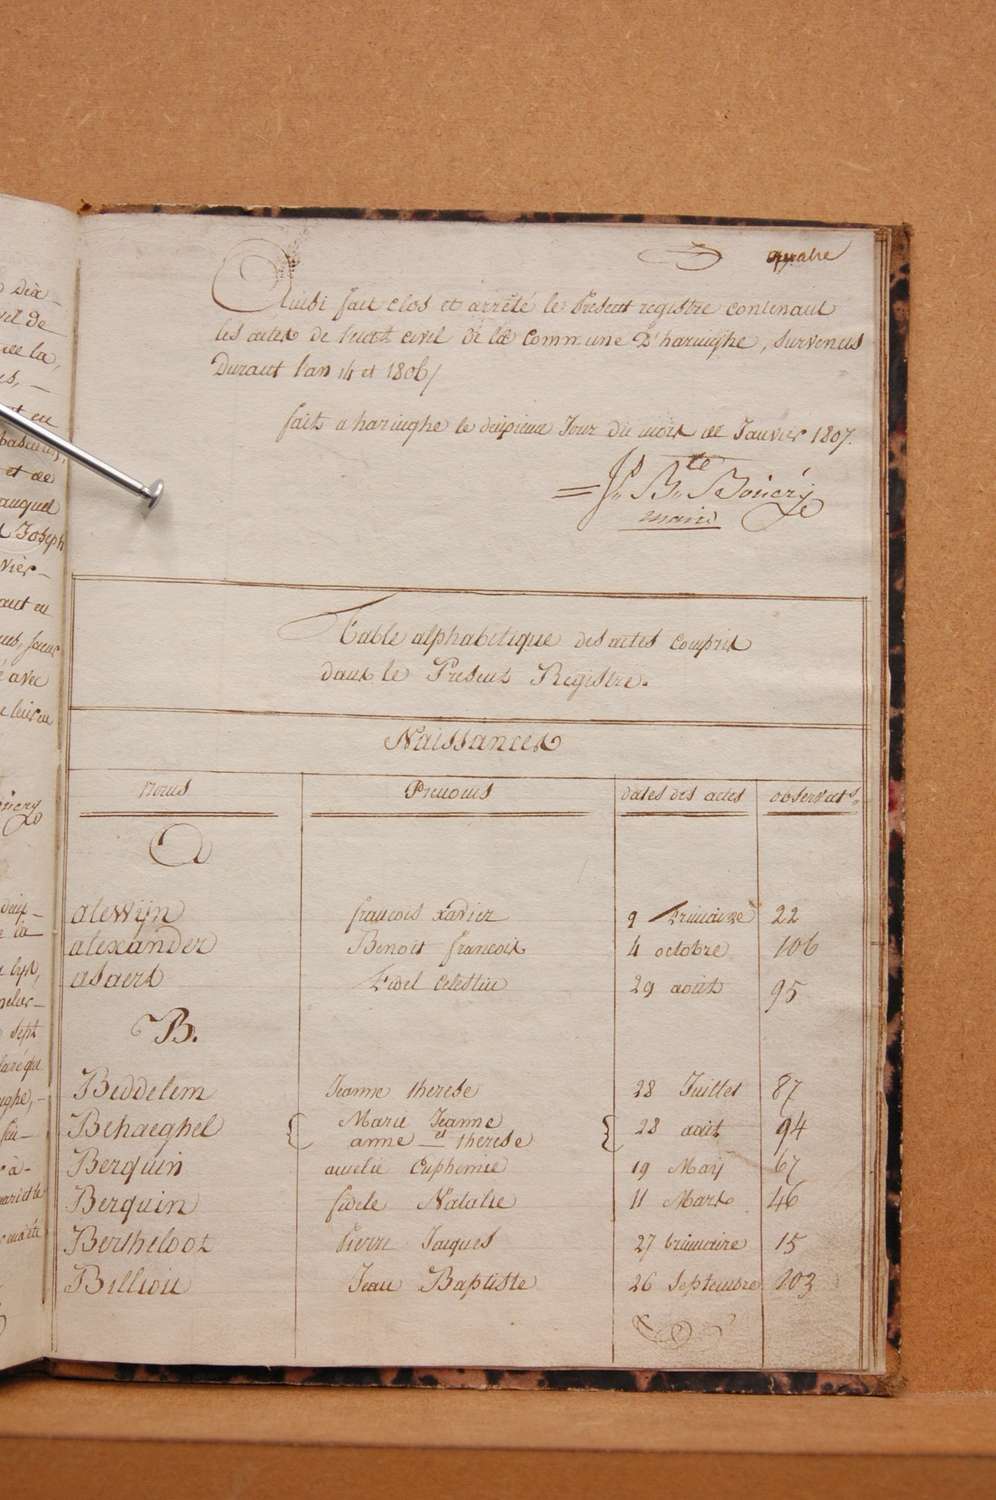 quatre
Ainsi fait clos et arrêté le Present registre contenant
les actes de l'état civil de la Commune D'haringhe, survenus
Durant l'an 14 et 1806/
fait a haringhe le deuxieme Jour du mois de Janvier 1807.
maire
Table alphabetique des actes compris
dans le Present Régistre.
Naissances
Noms Prenoms dates des actes observats
A
alewijn francois xavier 9 frimaire 22
alexander Benoit francois 4 octobre 106
asaert Fidel Celestin 29 août 95
B.
Beddelem Jeanne therese 28 Juillet 87
Behaeghel { Marie Jeanne
anne et therese } 28 août 94
Berquin amelie Euphemie 19 Maij 67
Berquin fidele Natalie 11 Mars 46
Bertheloot Pierre Jacques 27 brumaire 15
Billiou Jean Baptiste 26 Septembre 103